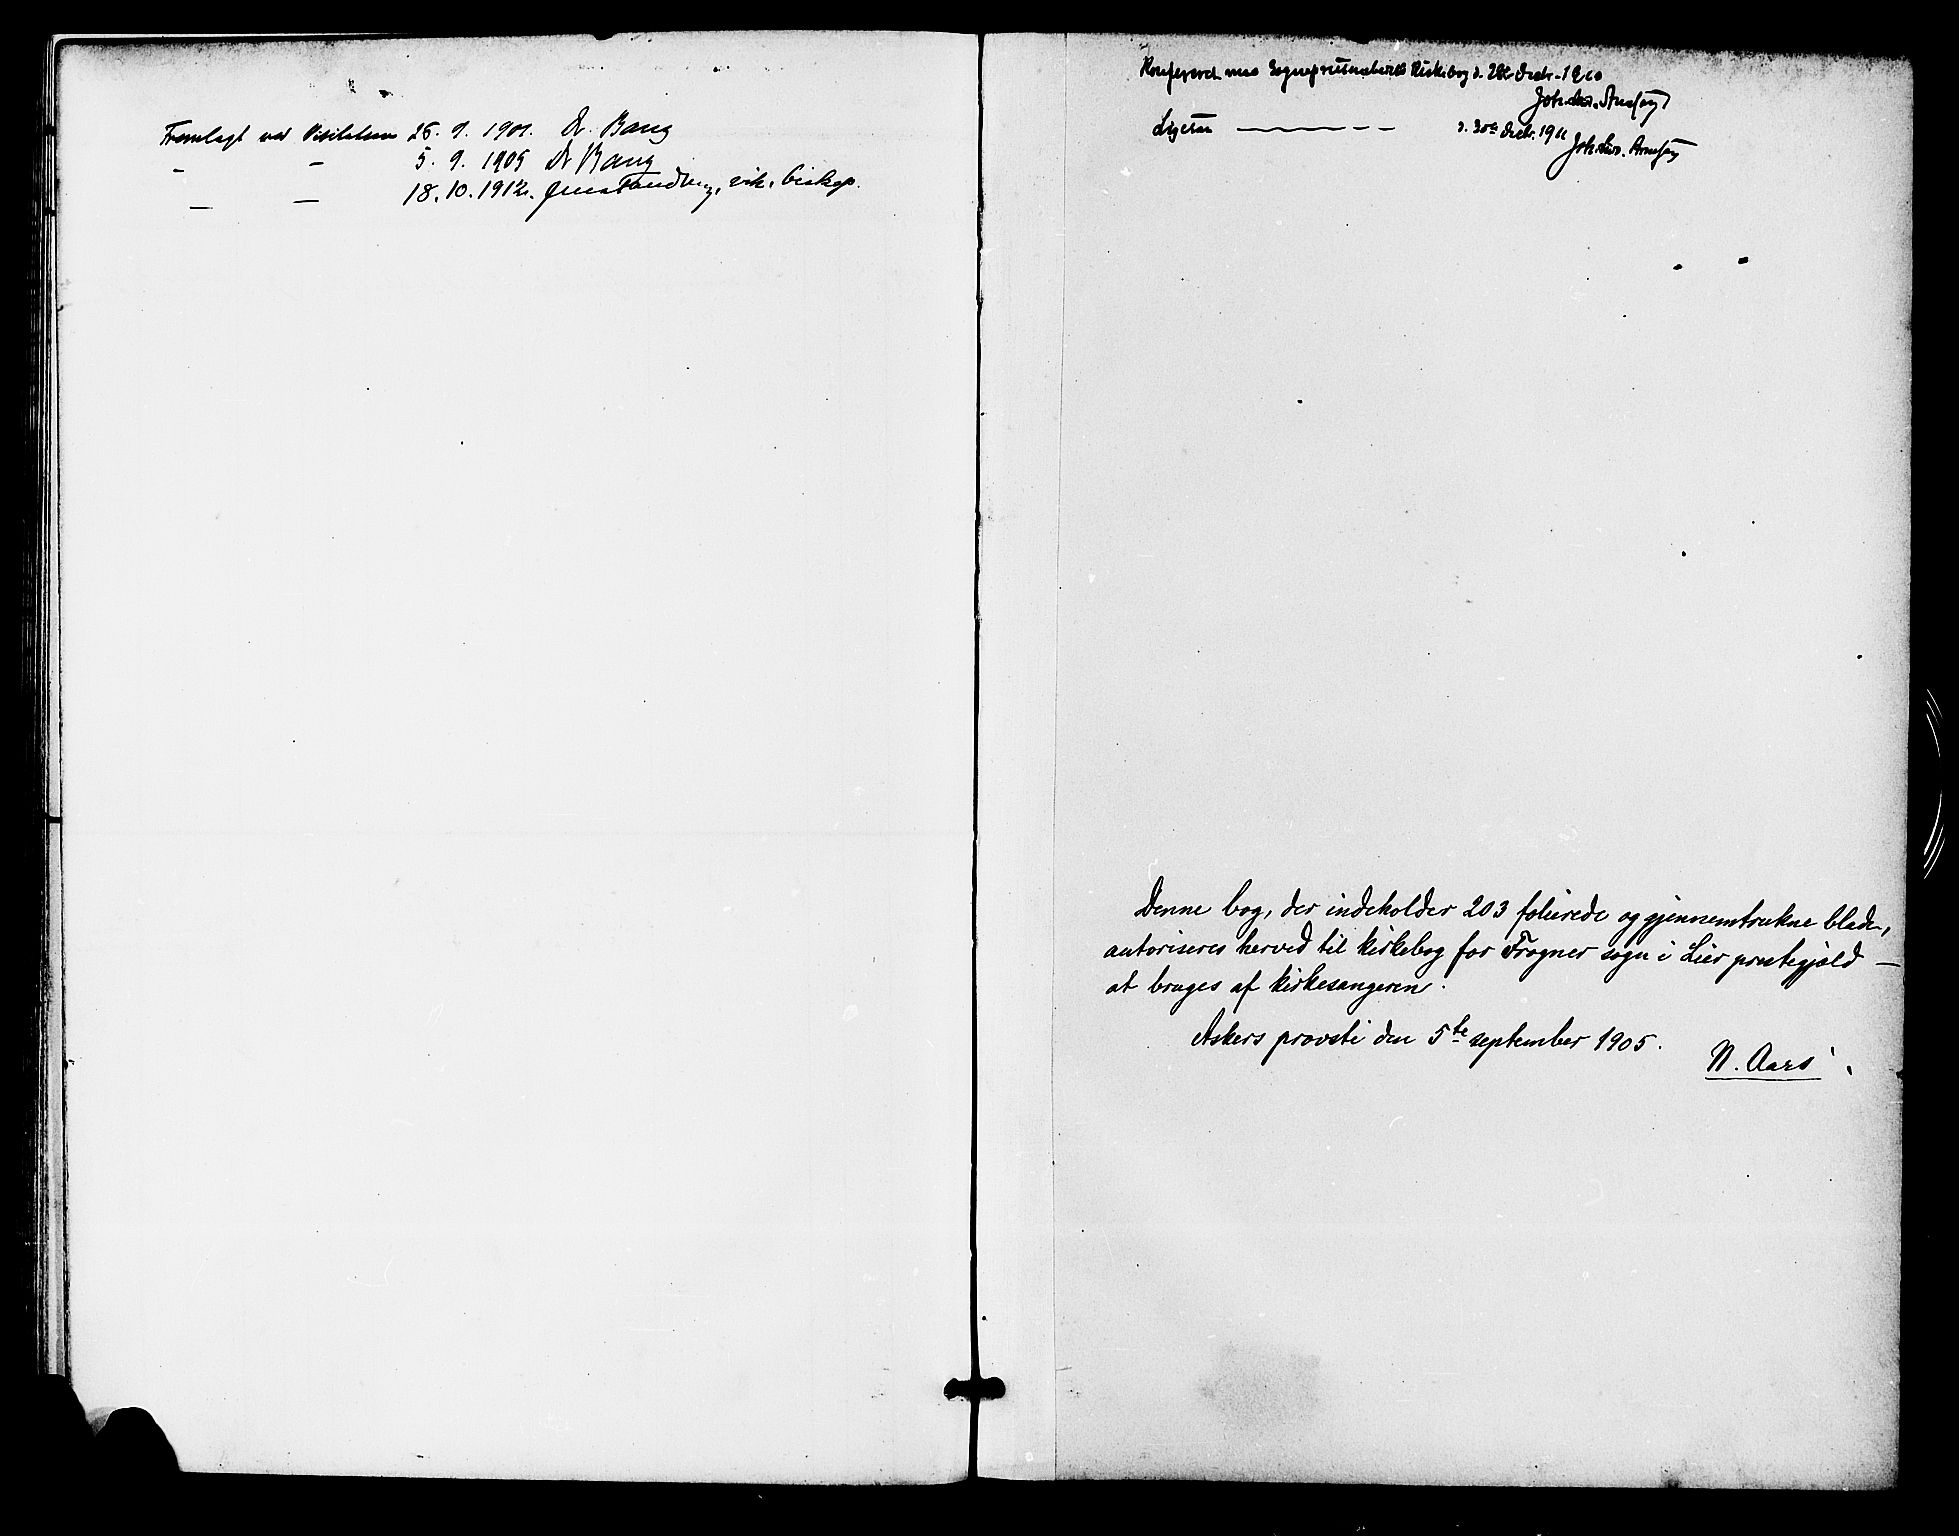 Fremlagt ved Visitatsen 26. 9. 1901. Dr. Bang
- - 5. 9. 1905 Dr Bang
- - 18. 10. 1912. Jens Tandberg, vik. biskop.
Konfereret med Sogneprestembedets Kirkebog d. 28de Decbr. 1910
Joh. Arnesen
Ligesaa — — — — d. 30te Decbr. 1911
Joh. Arnesen
Denne bog, der indeholder 203 folierede og gjennemtrukne blade,
autoriseres herved til kirkebog for Frogner sogn i Lier prestegjæld —
at bruges af kirkesangeren.
Askers provsti den 5te september 1905.
N. Aars